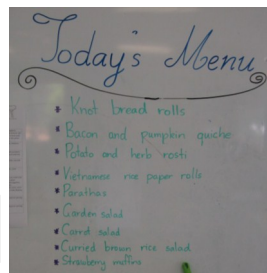 Today's Menu
* Knot bread rolls
* Bacon and pumpkin quiche
* Potato and herb rosti
* Vietnamese rice paper rolls
* Parathas
* Garden salad
* Carrot salad
* Curried brown rice salad
* Strawberry muffins